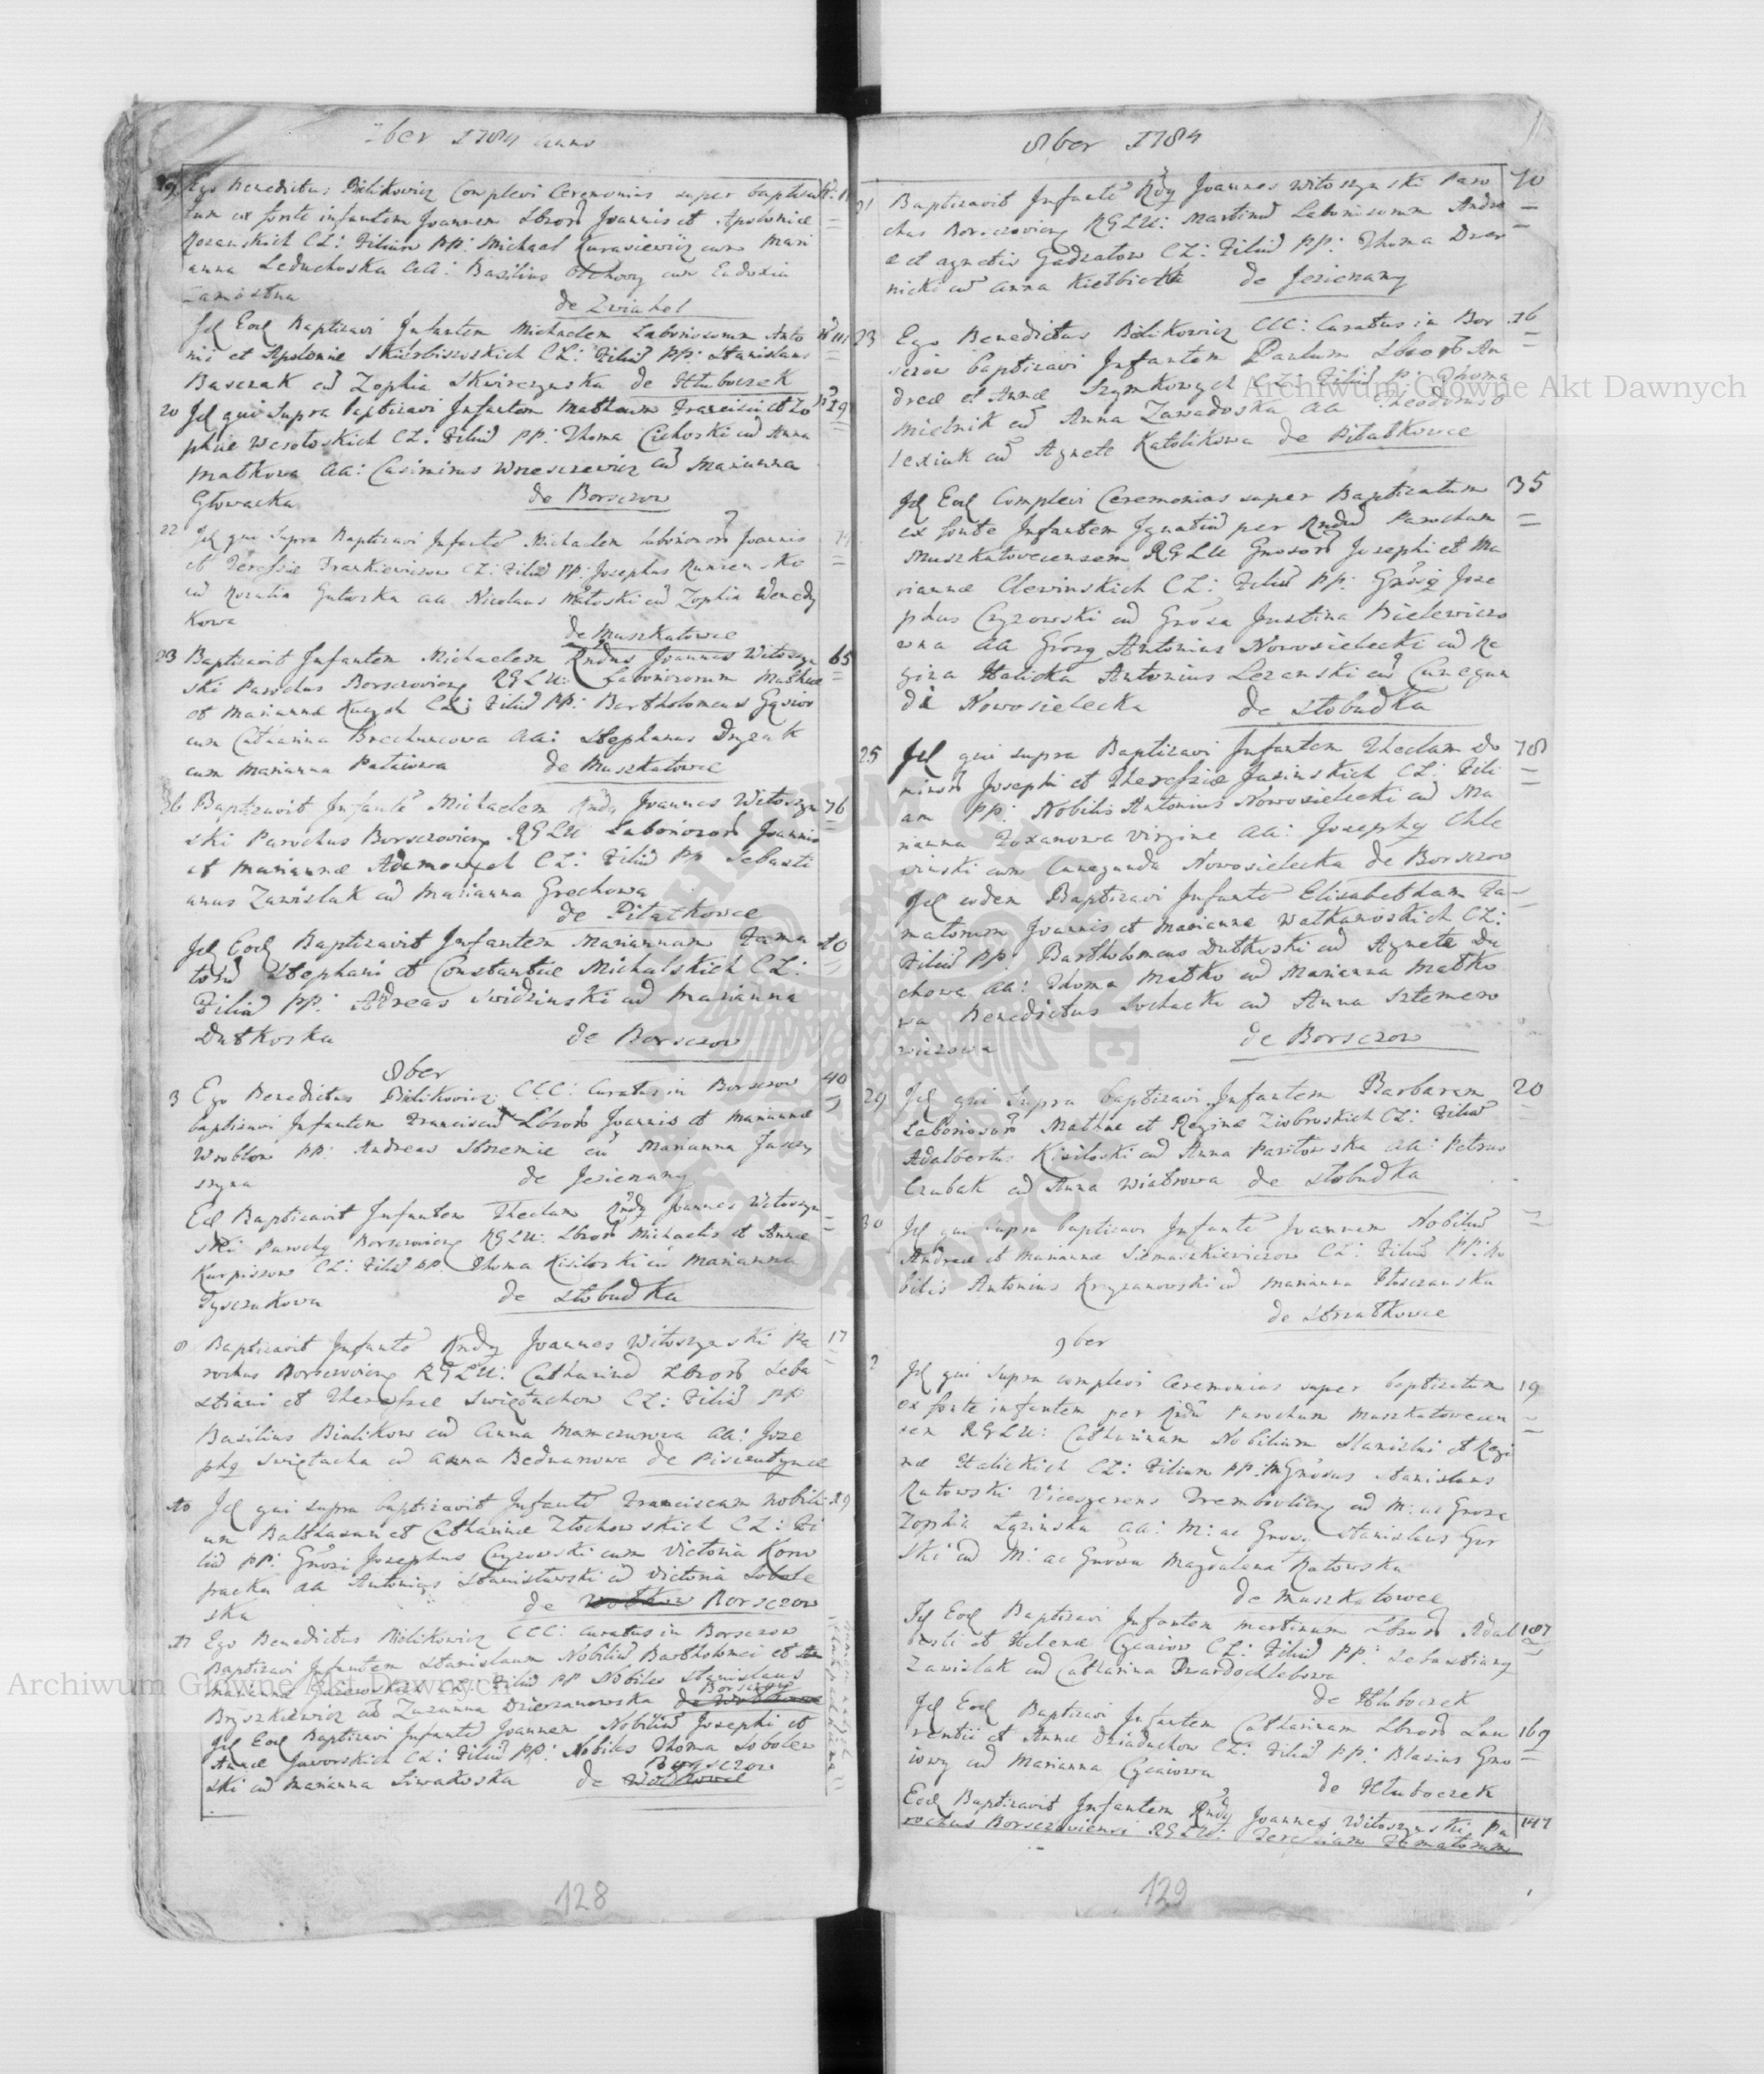 7ber 1784 anno
19 Ego Benedictus Bilikowicz Complevi Ceremonias super baptisa
tum ex fonte infantem Joannem Lbror Joannis et Apoloniæ
Rozanskich CL: Filium PP: Michael Kurasiewicz cum Mari
anna Leduchoska AA: Basilius cum Eudoxia
de Zwiahel
Jd Eod Baptizavi Jnfantem Michaelem Laboriosorum Anto
nii et Apoloniæ Skierbiszewskich CL: Filiu PP: Stanislaus
Basczak cu Zophia Skwirczynska de Hluboczek
20 Jd qui supra baptizavi Jnfantem Matheum Francisci et Zo 29
phiæ Wesołoskich CL: Filiu PP: Thoma Cichoski cu Anna
Małkowa AA: Casimirus Wrzesczewicz cu Marianna
Głowacka de Borsczow
22 Jd qui supra Baptizavi Jnfante Michaelem laborioror Joannis
et Teressiæ Frankiewiczow CL: Filiu PP: Josephus
cu Rozalia Gutoska AA Nicolaus cu Zophia
kowa
de Muszkatowce
23 Baptizavit Jnfantem Michaelem Rndus Joannes Witoszyn 65
ski Parochus Borsczovieng RGLU: Laboriosorum Mathiæ
et Mariannæ CL: Filiu PP: Bartholomeus
cum Catharina AA: Stephanus
cum Marianna de Muszkatowce
26 Baptizavit Jnfante Michaelem Rndy Joannes Witoszyn 76
ski Parochus Borsczovieng RGLU Laborioror Joannis
et Mariannæ Adamowych CL: Filiu PP Sebasti
anus Zawislak cu Marianna Grochowa
de Piłatkowce
Jd Eod Baptizavit Jnfantem Mariannam Fama 20
toru Stephani et Constantiæ Michalskich CL:
Filia PP: Adreas Swidzinski cu Marianna
Dutkoska de Borsczow
8ber
3 Ego Benedictus Bilikowicz CCC: Curatus in Borsczow 40
baptizavi Jnfantem Franciscu Lbror Joannis et Mariannæ
Wroblow PP: Andreas cu Marianna
de Jezierzany
Eod Baptizavit Jnfantem Theclam Rndy Joannes Witoszyn
ski Parochy Borsczovieng RGLU: Lbror Michaelis et Annæ
Karpiszow CL: Filia PP: Thoma Kisiloski cu Marianna
Tysczukowa de Słobudka
8 Baptizavit Jnfante Rndy Joannes Witoszynski Pa 17
rochus Borsczovieng RGLU: Catharina Lbror Seba
stiani et Theressiæ Swiętuchow CL: Filia PP
Basilius Bialikow cu Anna Mamczurowa AA: Joze
phg Swiętucha cu Anna Bednarowa de Pisczatynce
10 Jd qui supra baptizavit Jnfante Franciscum Nobili 29
um Balthasari et Catharinæ Złochowskich CL: Fi
liu PP: Gnosi Josephus Czyzowski cum Victoria Korw
packa AA Antonius Stanisławski cu Victoria Sobole
ska de Borsczow
11 Ego Benedictus Bilikowicz CCC: Curatus in Borsczow
Baptizavi Jnfantem Stanislaum Nobiliu Bartholomei et
Marianna CL: Filiu PP Nobiles Stanislaus
Bryszkiewicz cu Zuzanna Dzierzanowska Borsczow
Jd Eod Baptizavi Jnfante Joannem Nobiliu Josephi et
Annæ Jaworskich CL: Filiu PP: Nobiles Thoma Sobolew
ski cu Marianna Siwakoska de Borsczow
128
8ber 1784
21 Baptizavit Jnfante Rdy Joannes Witoszynski Paro 70
chus Borsczovieng RGLU: Martinu Laboriosorum Andre
æ et Agnetis Gadzałow CL: Filiu PP: Thoma Dwer
nicki cu Anna Kiełbicka de Jezierzany
23 Ego Benedictus Bilikowicz CCC: Curatus in Bor 36
sczow baptizavi Jnfantem Paulum Lbror An
dreæ et Annæ Szymkowych CL: Filiu P: Thoma
Mielnik cu Anna Zawadoska AA Theodorus
lexiuk cu Agnete Katolikowa de Piłatkowce
Jd Eod Complevi Ceremonias super Baptizatum 35
ex fonte Jnfantem Jgnatiu per Rndu Parochum
Muszkatovecensem RGLU Gnosor Josephi et Ma
riannæ Clewinskich CL: Filiu PP: Gnosg Jose
phus Czyzowski cu Grosa Justina Bielewiczo
wna AA Gnosg Antonius Nowosielecki cu Re
gina Halicka Antonius Lezanski cu Cunegun
di Nowosielecka de Słobudka
25 Jd qui supra Baptizavi Jnfantem Theclam Do 78
minor Josephi et Theressiæ Jasinskich CL: Fili
am PP: Nobilis Antonius Nowosielecki cu Ma
rianna virgine AA: Josephy Chle
winski cum Cunegunda Nowosielecka de Borsczow
Jd eodem Baptizavi Jnfante Elisabetham Fa
matorum Joannis et Mariannæ Watkowskich CL:
Filiu PP: Bartholomeus Dutkoski cu Agnete Du
chowa AA: Thoma Matko cu Marianna Matko
wa Benedictus Sochacki cu Anna Sztemero
wiczowa de Borsczow
29 Jd qui supra baptizavi Jnfantem Barbaram 20
Laboriosor Mathiæ et Reginæ Ziobroskich CL: Filia
Adalbertus Kisiloski cu Anna Pawłowska AA: Petrus
Czubak cu Anna Wiatrowa de Słobudka
30 Jd qui supra baptizavi Jnfante Joannem Nobiliu
Andreæ et Mariannæ Siemaszkiewiczow CL: Filiu PP: No
bilis Antonius Krzyzanowski cu Marianna Tłusczanska
de Strzałkowce
9ber
2 Jd qui supra complevi Ceremonias super baptizatum 19
ex fonte infantem per Rndu Parochum Muszkatovecen
sem RGLU: Catharinam Nobilium Stanislai et Regi
næ Halickich CL: Filiam PP: MGnosus Stanislaus
Ratowski Vicesgerens Trembovlieng cu M: ac Gnosa
Zophia Łązinska AA: M: ac Gnosg Stanislaus Gor
ski cu M: ac Gnosa Magdalena Ratowska
de Muszkatowce
Jd Eod Baptizavi Jnfantem Martinum Lbror Adal 187
berti et Helenæ Cycaiow CL: Filiu PP: Sebastiang
Zawislak cu Catharina Twardochlebowa
de Hluboczek
Jd Eod Baptizavi Jnfantem Catharinam Lbror Lau 169
rentii et Annæ Dziaduchow CL: Filia PP: Blasius Gno
iowy cu Marianna Cycaiowa de Hluboczek
Eod Baptizavit Jnfantem Rndy Joannes Witoszynski Pa 147
rochus Borsczoviensi RGLU: Teressiam Famatorum
129
Archiwum Główne Akt Dawnych
Archiwum Główne Akt Dawnych
ARCHIWUM GŁÓWNE AKT DAWNYCH